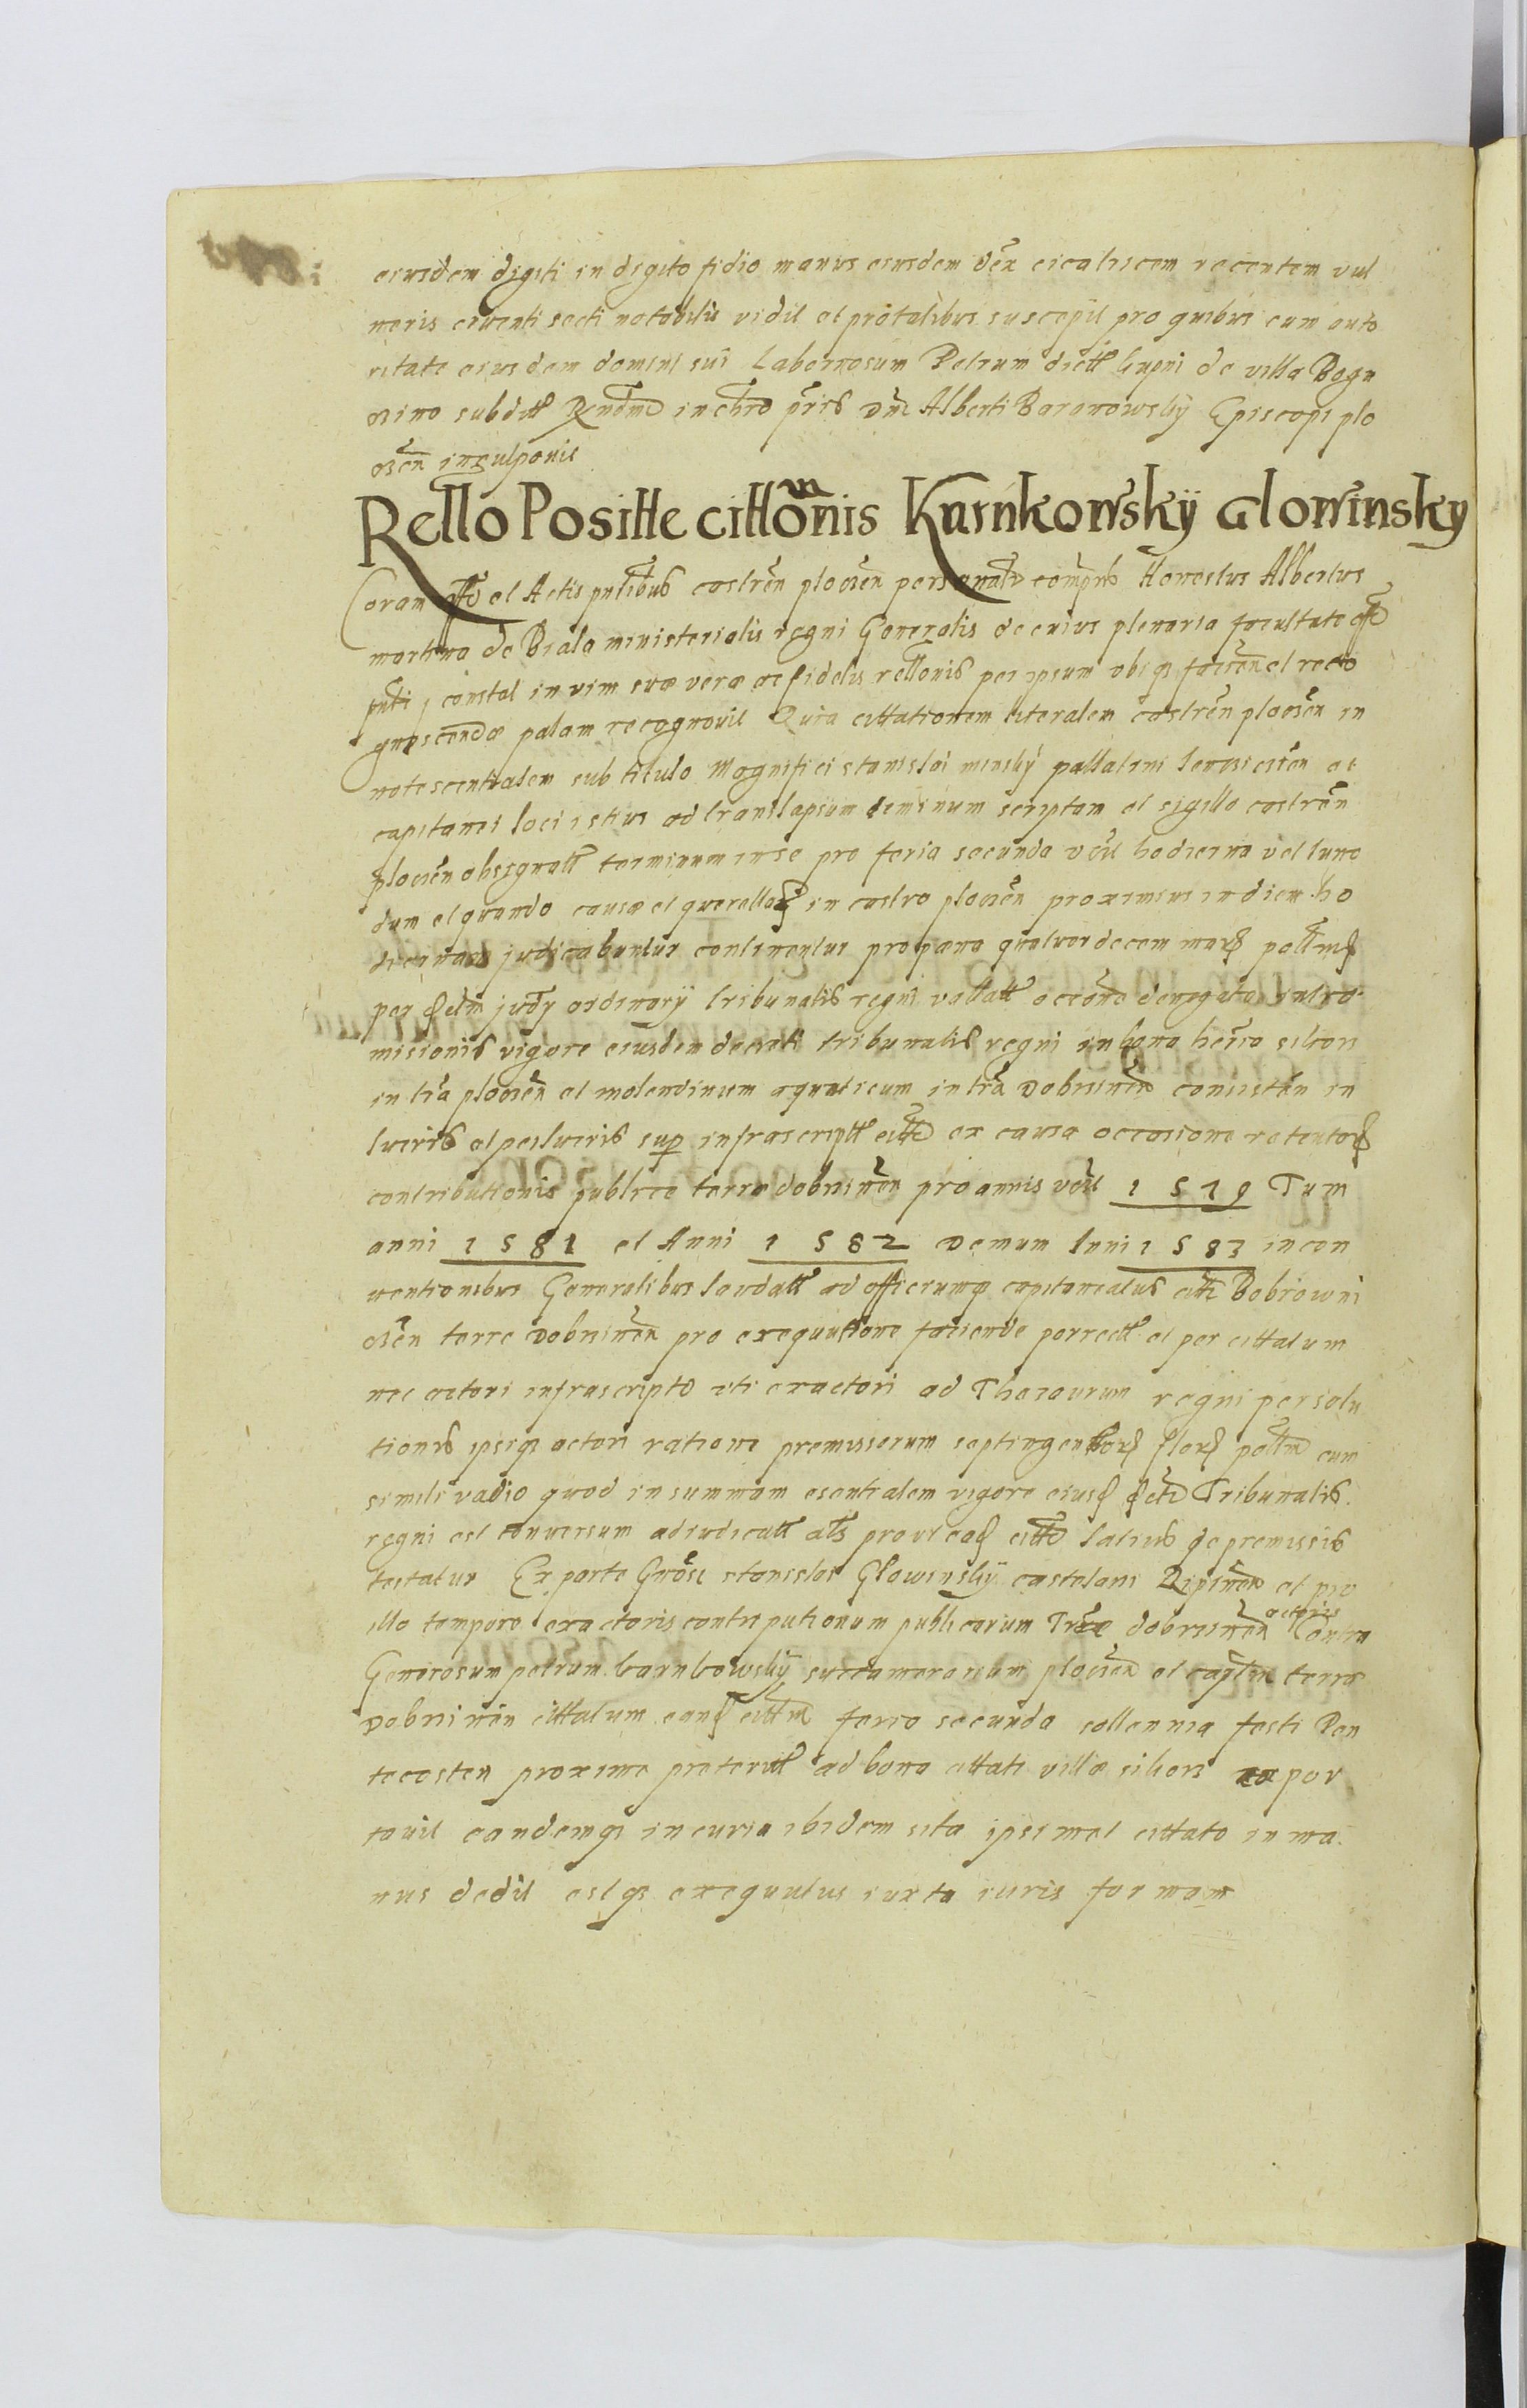 eiusdem digiti in digito fidio manus eiusdem dex cicatiscem recentem vul
neris cruenti secti notabilis vidit et pro talibus suscepit pro quibus cum auto
ritate eiusdem domini sui Laboriosum Petrum dictt kupni de villa Bogu
czino subditt Rndmi in chro pris Dni Alberti Baranowsky Episcopi plo
czen inculpavit
Rello Positte cittonis Karnkowskÿ Glowinsky
Coram offo et Actis pntibus castren ploczen personalr comprns Honestus Albertus
martino de Biala ministerialis regni Generalis de cuius plenaria facultate offo
pnti constat in vim suæ veræ ac fidelis rellonis per ipsum obiqз faciend et reco
gnoscendæ palam recognovit Quia cittationem literalem castren ploczen in
notescentialem sub titulo Magnifici Stanislai minsky pallatini lencicien ac
capitanei loci istius ad translapsum terminum scriptam et sigillo castren
plocien obsignatt terminum in se pro feria secunda vdlt hodierna vel tunc
dum et quando causæ et querellaꝝ in castro plocien proximius in diem ho
diernam judicabuntur continentur pro pæna quatuordecem marꝝ polllium
per dcrm judy ordinarÿ tribunalis regni vallatt occone denegatæ intro
misionis vigore eiusdem decreti tribunalis regni in bona herro silion
in tra ploczen et molendinum aquaticum in tra Dobrinen consistn in
lucris et perlucris sup infrascriptt citto ex causa occosione retentoꝝ
contributionis publice terræ dobrinen pro annis vdlt 1579 Tum
anni 1581 et Anni 1582 Demum Anni 1583 in con
uentionibus Generalibus laudatt ad officiumqз capitaneatus citti Bobrowni
czen terre Dobrinen pro exequutione faciende porrectt et per cittatum
nec actori infrascripto vti exactori ad Thezaurum regni persolu
tionis ipsiqз actori ratione premissorum septingentorꝝ florꝝ pollm cum
simili vadio quod in summam esentialem vigore eiusꝝ dcrti Tribunalis
regni est conversum adiudicatt als prout eaꝝ citto latius de premissis
testatur Ex parte Grosi Stanislai Glowinsky castelani Ripinen et pro
illo tempore exactoris contriputionum publicarum Trrae dobrzinen actoris Contra
Generosum petrum karnkowsky succamerarium ploczen et captm terre
Dobrinen cittatum eanꝝ cittm feria secunda sollennia festi Pen
tecosten proxime preteritt ad bona cittati villæ silion repor
tavit eandemqз in curia ibidem sita ipsimet cittato in ma
nus dedit estqз exequutus iuxta iuris formam